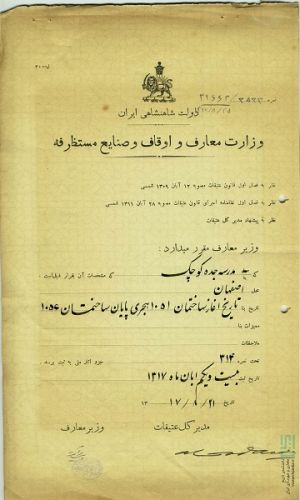 دولت شاهنشاهی ایران
وزارت معارف و اوقاف و صنایع مستظرفه
نظر به فصل اول قانون عتیقات مصوبه ۱۲ آبان ۱۳۰۹ شمسی
نظر به فصل اول نظامنامه اجرای قانون عتیقات مصوبه ۲۸ آبان ۱۳۱۱ شمسی
نظر به پیشنهاد مدیر کل عتیقات
وزیر معارف مقرر میدارد :
مدرسه جده کوچک که مشخصات آن بقرار ذیلست :
محل اصفهان
تاریخ بنا تاریخ آغاز ساختمان ۱۰۵۱ هجری پایان ساختمان ۱۰۵۶
ممیزات بنا
ملاحظات
تحت نمره ۳۱۴ جزو آثار ملی به ثبت برسد .
تاریخ ثبت بیست و یکم آبان ماه ۱۳۱۷
تاریخ ۲۱ / ۸ / ۱۷ ۱۳
مدیر کل عتیقات وزیر معارف